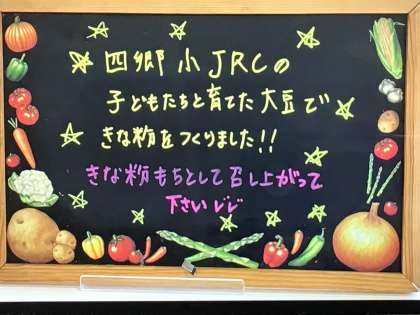 四郷小JRCの
子どもたちと育てた大豆で
きな粉をつくりました!!
きな粉もちとして召し上がって
下さい